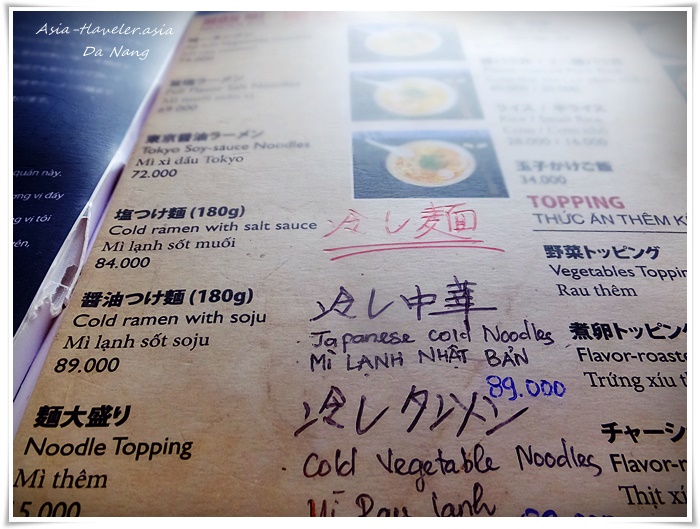 Asia-Traveler.asia
Da Nang
69.000
東京醤油ラーメン
Tokyo Soy-sauce Noodles
Mì xì dầu Tokyo
72.000
塩つけ麺 (180g)
Cold ramen with salt sauce
Mì lạnh sốt muối
84.000
醤油つけ麺 (180g)
Cold ramen with soju
Mì lạnh sốt soju
89.000
麺大盛り
Noodle Topping
Mì thêm
5.000
冷し麺
冷し中華
Japanese cold Noodles
MÌ LẠNH NHẬT BẢN
89.000
冷しタンメン
Cold Vegetable Noodles
Mì Rau lạnh
玉子かけご飯
34.000
TOPPING
THỨC ĂN THÊM K
野菜トッピング
Vegetables Toppin
Rau thêm
煮卵トッピング
Flavor-roaste
Trứng xíu
チャーシ
Flavor-r
Thịt xí
quán này.
ơng vị đấy
ng vị tôi